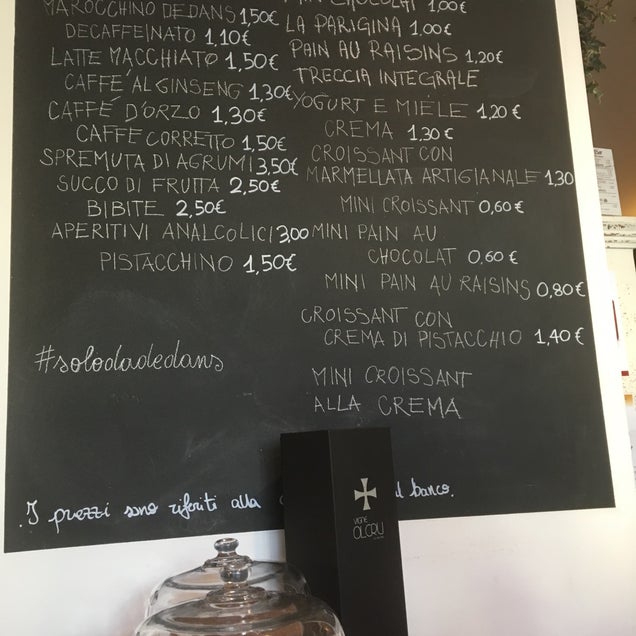 MAROCCHINO DEDANS 1,50€
DECAFFEINATO 1,10€
LATTE MACCHIATO 1,50€
CAFFE' AL GINSENG 1,30€
CAFFÉ D'ORZO 1,30€
CAFFE CORRETTO 1,50€
SPREMUTA DI AGRUMI 3,50€
SUCCO DI FRUTTA 2,50€
BIBITE 2,50€
APERITIVI ANALCOLICI 3,00
PISTACCHINO 1,50€
#solodadedans
CHOCOLAT 1,00€
LA PARIGINA 1,00€
PAIN AU RAISINS 1,20€
TRECCIA INTEGRALE
YOGURT E MIELE 1,20€
CREMA 1,30€
CROISSANT CON
MARMELLATA ARTIGIANALE 1,30
MINI CROISSANT 0,60€
MINI PAIN AU
CHOCOLAT 0,60€
MINI PAIN AU RAISINS 0,80€
CROISSANT CON
CREMA DI PISTACCHIO 1,40€
MINI CROISSANT
ALLA CREMA
I prezzi sono riferiti alla al banco.
VIGNE
OLCRU